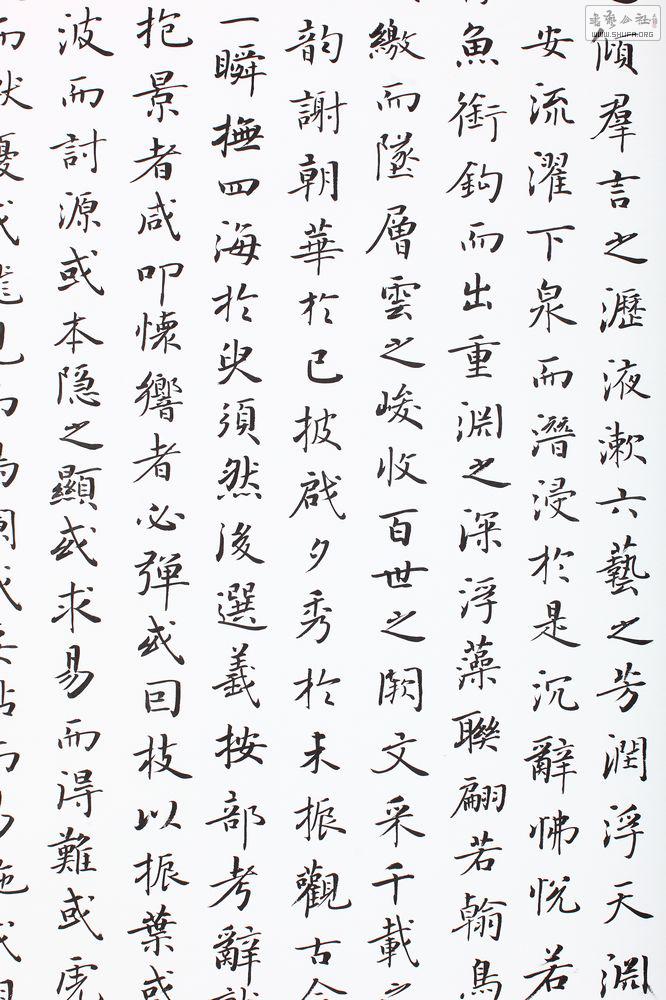 傾羣言之瀝液漱六藝之芳潤浮天淵
安流濯下泉而潛浸於是沉辭怫悅若
魚銜鈎而出重淵之深浮藻聯翩若翰鳥
繳而墜層雲之峻收百世之闕文采千載之
韵謝朝華於已披啟夕秀於未振觀古今
一瞬撫四海於臾須然後選義按部考辭
抱景者咸叩懷響者必彈或回枝以振葉或
波而討源或本隱之顯或求易而得難或虎
WWW.SHUFA.ORG